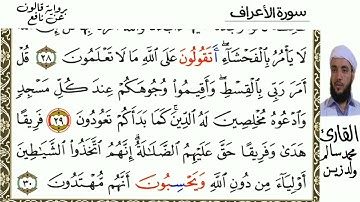 سورة الأعراف
برواية قالون
عن نافع
لَا يَأْمُرُ بِالْفَحْشَآءِ أَتَقُولُونَ عَلَى اللَّهِ مَا لَا تَعْلَمُونَ ٢٨ قُلْ
أَمَرَ رَبِّي بِالْقِسْطِ وَأَقِيمُوا وُجُوهَكُمْ عِندَ كُلِّ مَسْجِدٍ
وَادْعُوهُ مُخْلِصِينَ لَهُ الدِّينَ كَمَا بَدَأَكُمْ تَعُودُونَ ٢٩ فَرِيقًا
هَدَىٰ وَفَرِيقًا حَقَّ عَلَيْهِمُ الضَّلَالَةُ إِنَّهُمُ اتَّخَذُوا الشَّيَاطِينَ
أَوْلِيَآءَ مِن دُونِ اللَّهِ وَيَحْسِبُونَ أَنَّهُم مُّهْتَدُونَ ٣٠
القارئ
محمد سالم
ولد زين